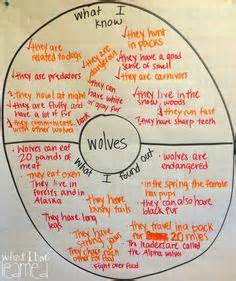 what I know
they are related to dogs
they are dangerous
they hunt in packs
they have a good sense of smell
they are carnivors
they are predators
they howl at night
they are fluffy and have a lot of fur
they can have white or gray fur
they live in the snow, woods
they run fast
they communicate with other wolves
they have sharp teeth
wolves
what I found out
Wolves can eat 20 pounds of meat
they eat oxen
They live in forests and in Alaska
They have long legs
they have bushy tails
They have strong jaws
They chase each other for food
Fight over food
wolves are endangered
in the spring the female has pups
they can also have black fur
they travel in a pack for 20 miles
The leaders are called the Alpha wolves
what I have learned